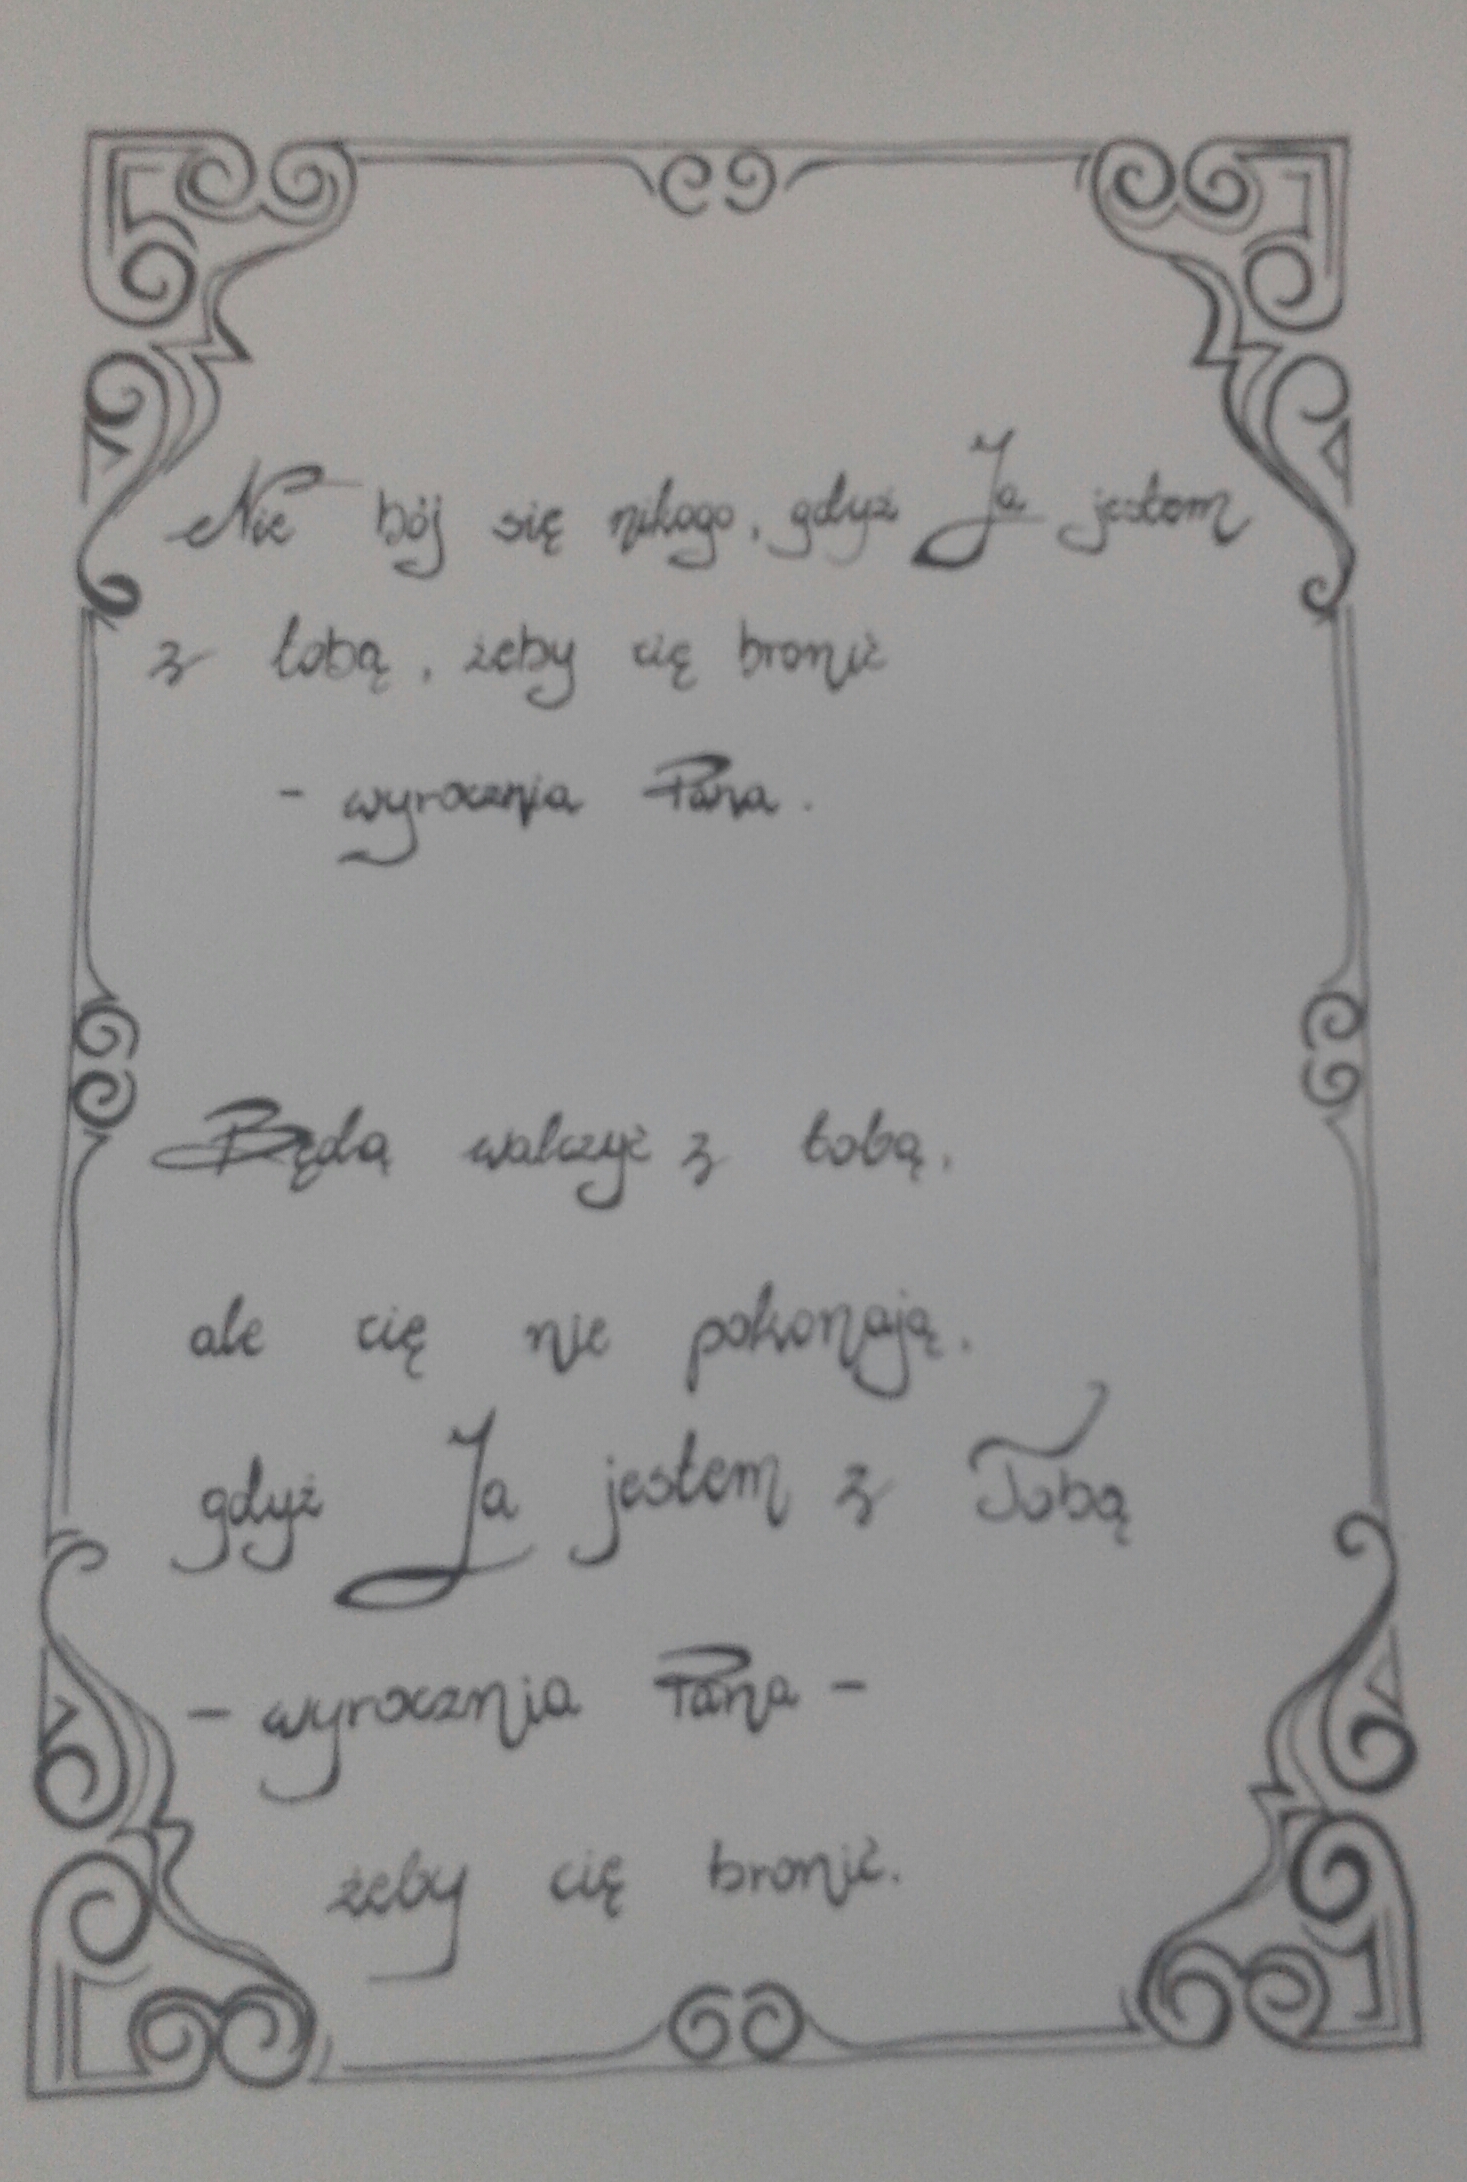 Nie bój się nikogo, gdyż Ja jestem
z tobą, żeby cię bronić
- wyrocznia Pana.
Będą walczyć z tobą,
ale cię nie pokonają,
gdyż Ja jestem z Tobą
- wyrocznia Pana -
żeby cię bronić.